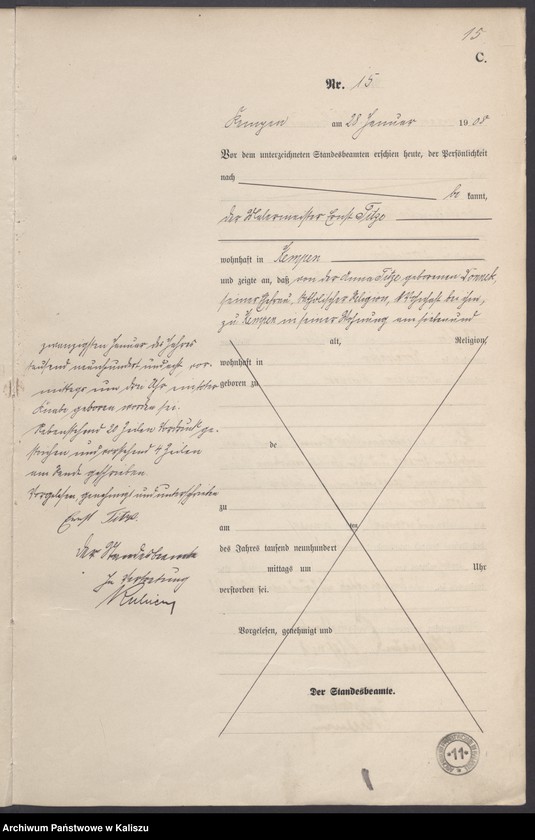 15
C.
Nr. 15
Kempen am 28 Januar 1908
Vor dem unterzeichneten Standesbeamten erschien heute, der Persönlichkeit
nach
be kannt,
der Malermeister Ernst Titze
wohnhaft in Kempen
und zeigte an, daß von der Anna Titze geborenen
seiner Ehefrau, katholischer Religion, wohnhaft bei ihm,
zu Kempen in seiner Wohnung am sieben und
alt, Religion,
wohnhaft in
geboren zu
de
zu
am ten
des Jahres tausend neunhundert
mittags um Uhr
verstorben sei.
Vorgelesen, genehmigt und
Der Standesbeamte.
zwanzigsten Januar des Jahres
tausend neunhundert und acht vor-
mittags um drei Uhr ein toter
Knabe geboren worden sei.
Nebenstehend 20 Zeilen Vordruck ge-
strichen und vorstehend 4 Zeilen
am Rande geschrieben.
Vorgelesen, genehmigt und unterschrieben
Ernst Titze.
Der Standesbeamte
In Vertretung
*11*
Archiwum Państwowe w Kaliszu